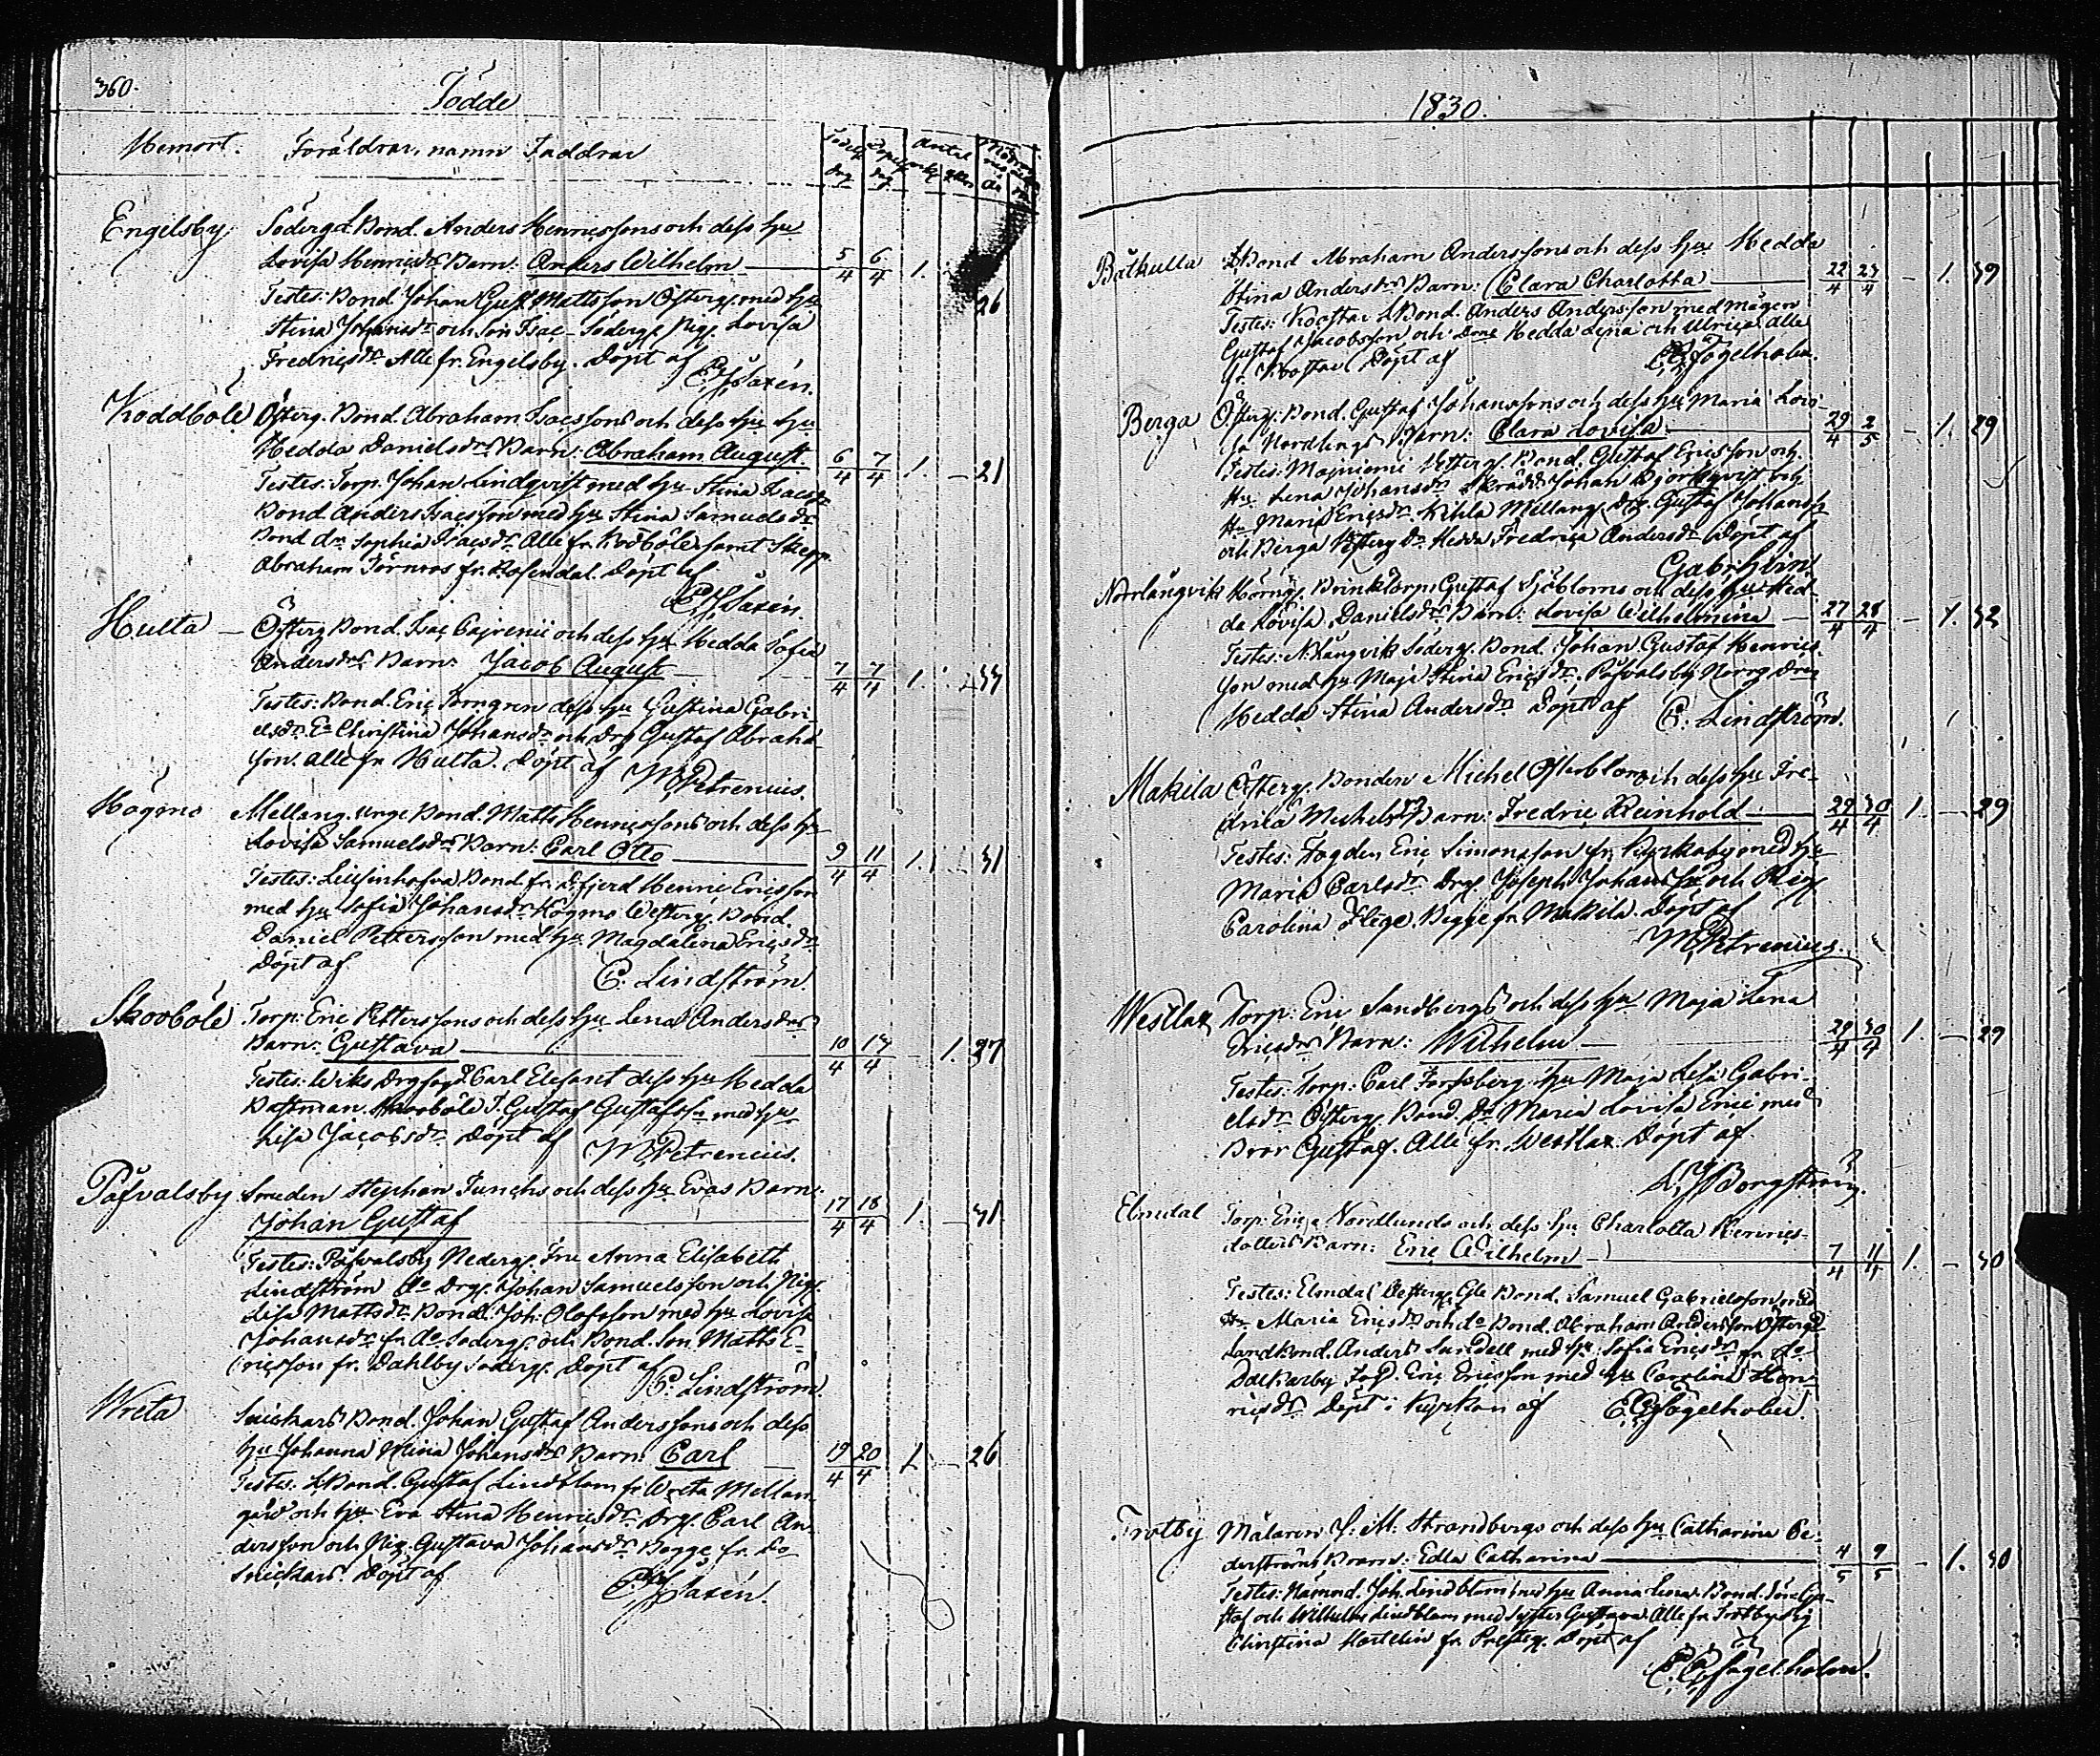 360.
Födde
Hemort. Föräldrar, namn Faddrar
Födelse dag Döpelse dag Antal Mödrarnes år
Engelsby Söderg. Bond. Anders Henricssons och dess hu
Lovisa Henricsdrs Barn: Anders Wilhelm 5/4 6/4 1. 26
Testes: Bond. Johan Gust. Mattsson Österg. med hu
Stina Johansdr och Son Isac - Söderg. Pig. Lovisa
Fredricsdr Alle fr. Engelsby. Döpt af
Saxén.
Koddböle Österg. Bond. Abraham Isacssons och dess hu hu
Hedda Danielsdrs Barn: Abraham August. 6/4 7/4 1. — 21
Testes: Torp. Johan Lindqvist med hu Stina Isacsdr
Bond Anders Isacsson med hu Stina Samuelsdr
Bond dr Sophia Isacsdr Alle fr. Kodböle samt Skepp.
Abraham Törnros fr. Rosendal. Döpt af
Saxén.
Hulta — Österg Bond. Isac Cajrenii och dess hu Hedda Sofia
Andersdrs Barn: Jacob August 7/4 7/4 1. 33
Testes: Bond. Eric Forngren dess hu Gustina Gabri-
elsdr. Ea Christina Johansdr och Drg Gustaf Abraha
son. alle fr. Hulta. Döpt af M. Petrenius.
Högmo Mellang. unge Bond. Matts Henricssons och dess hu
Lovisa Samuelsdrs Barn: Carl Otto 9/4 11/4 1. 31
Testes: Bond. fr. Henric Ericsson
med hu Sofia Johansdr Högmo Westerg. Bond.
Daniel Pettersson med hu Magdalena Ericsdr
Döpt af C. Lindström.
Skovböle Torp: Eric Petterssons och dess hu Lena Andersdrs
Barn: Gustava 10/4 17/4 — 1. 27
Testes: Wiks Drg fogd. Carl Elefant dess hu Hedda
Bastman. Skovböle T. Gustaf Gustafss. med hu
Lisa Jacobsdr Döpt af M. Petrenius.
Påfvalsby Smeden Stephan Funchs och dess hu Evas Barn:
Johan Gustaf 17/4 18/4 1. — 31
Testes: Påfvalsby Nederg. Fru Anna Elisabeth
Lindström do Drg. Johan Samuelsson och Pig.
Lisa Mattsdr. Bond. Joh. Olofsson med hu Lovisa
Johansdr fr. do Söderg. och Bond. Son. Matts E-
ricsson fr. Dahlby Söderg. Döpt af
C. Lindström
Wreta Snickars Bond. Johan Gustaf Anderssons och dess
hu Johanna Mina Johansdrs Barn: Carl 19/4 20/4 1. — 26
Testes: LBond. Gustaf Lindblom fr Wreta Mellan-
gård och hu Eva Stina Henricsdr Drg. Carl An-
dersson och Pig. Gustava Johansdr Bagge fr. Do
Snickars. Döpt af
Saxén.
1830.
Båtkulla LBond Abraham Anderssons och dess hu Hedda
Stina Andersdrs Barn: Clara Charlotta 22/4 23/4 — 1. 39
Testes: Koostar LBond. Anders Andersson med mågen
Gustaf Jacobsson och Döne Hedda Lena och Ulrica alle
fr. Koostar Döpt af Fogelholm.
Berga Österg. Bond. Gustaf Johanssons och dess hu Maria Lovi-
sa Nordlings Barn: Clara Lovisa 29/4 2/5 — 1. 29
Testes: Majniemi Westerg. Bond. Gustaf Ericsson och
Hu Lena Johansdr Skrädd Johan Björkqvist och
Hu Maria Ericsdr. Kihla Mellang. Drg. Gustaf Johanss.
och Berga Westerg Dr Hedda Fredrica Andersdr Döpt af
Gabr. Hein
Norrlångvik Hörng. Brinktorp. Gustaf Sjöbloms och dess hu Hed-
da Lovisa Danielsdrs Barn: Lovisa Wilhelmina 27/4 28/4 — 1. 32
Testes: N. Långvik Söderg. Bond. Johan Gustaf Henrics-
son med hu Maja Stina Ericsdr. Påfvalsby Norrg Drg
Hedda Stina Andersdr Döpt af C. Lindström.
Makila Österg. Bonden Michel Österbloms och dess hu Fre-
drica Michelsdrs Barn: Fredric Reinhold 29/4 30/4 1. — 29
Testes: Fogden Eric Simonsson fr. Kyrkoby med hu
Maria Carlsdr Drg. Joseph Johansson och Pig.
Carolina Flege. Bägge fr. Makila. Döpt af
M. Petrenius.
Westlax Torp: Eric Sandbergs och dess hu Maja Lena
Ericsdrs Barn: Wilhelm 29/4 30/4 1. — 29
Testes: Torp: Carl Forssberg hu Maja Lisa Gabri-
elsdr Österg. Bond. Dr Maria Lovisa Erici med
Bror Gustaf. Alle fr. Westlax Döpt af
Borgström.
Elmdal Torp. Eric Nordlunds och dess hu Charlotta Henrics-
dotters Barn: Eric Wilhelm 7/4 11/4 1. — 30
Testes: Elmdal Westerg. Bond. Samuel Gabrielsson med
Hu Maria Ericsdr och do Bond. Abraham Andersson Österg.
Landbond. Anders Lundell med hu Sofia Ericsdr fr. do
Dalkarby Eric Ericsson med hu Carolina Hen-
ricsdr Döpt i Kyrkan af Fogelholm.
Trotby Målaren J: M: Strandbergs och dess hu Catharina Ce-
derströms Barn: Edla Catharina 4/5 9/5 — 1. 30
Testes: Nämnd. Joh. Lindblom med hu Anna Lena. Bond. Söner Gu-
staf och Wilhelm Lindblom med Syster Gustava. Alle fr. Trotby Pig
Christina Hartelin fr. Presteg. Döpt af
Fogelholm.